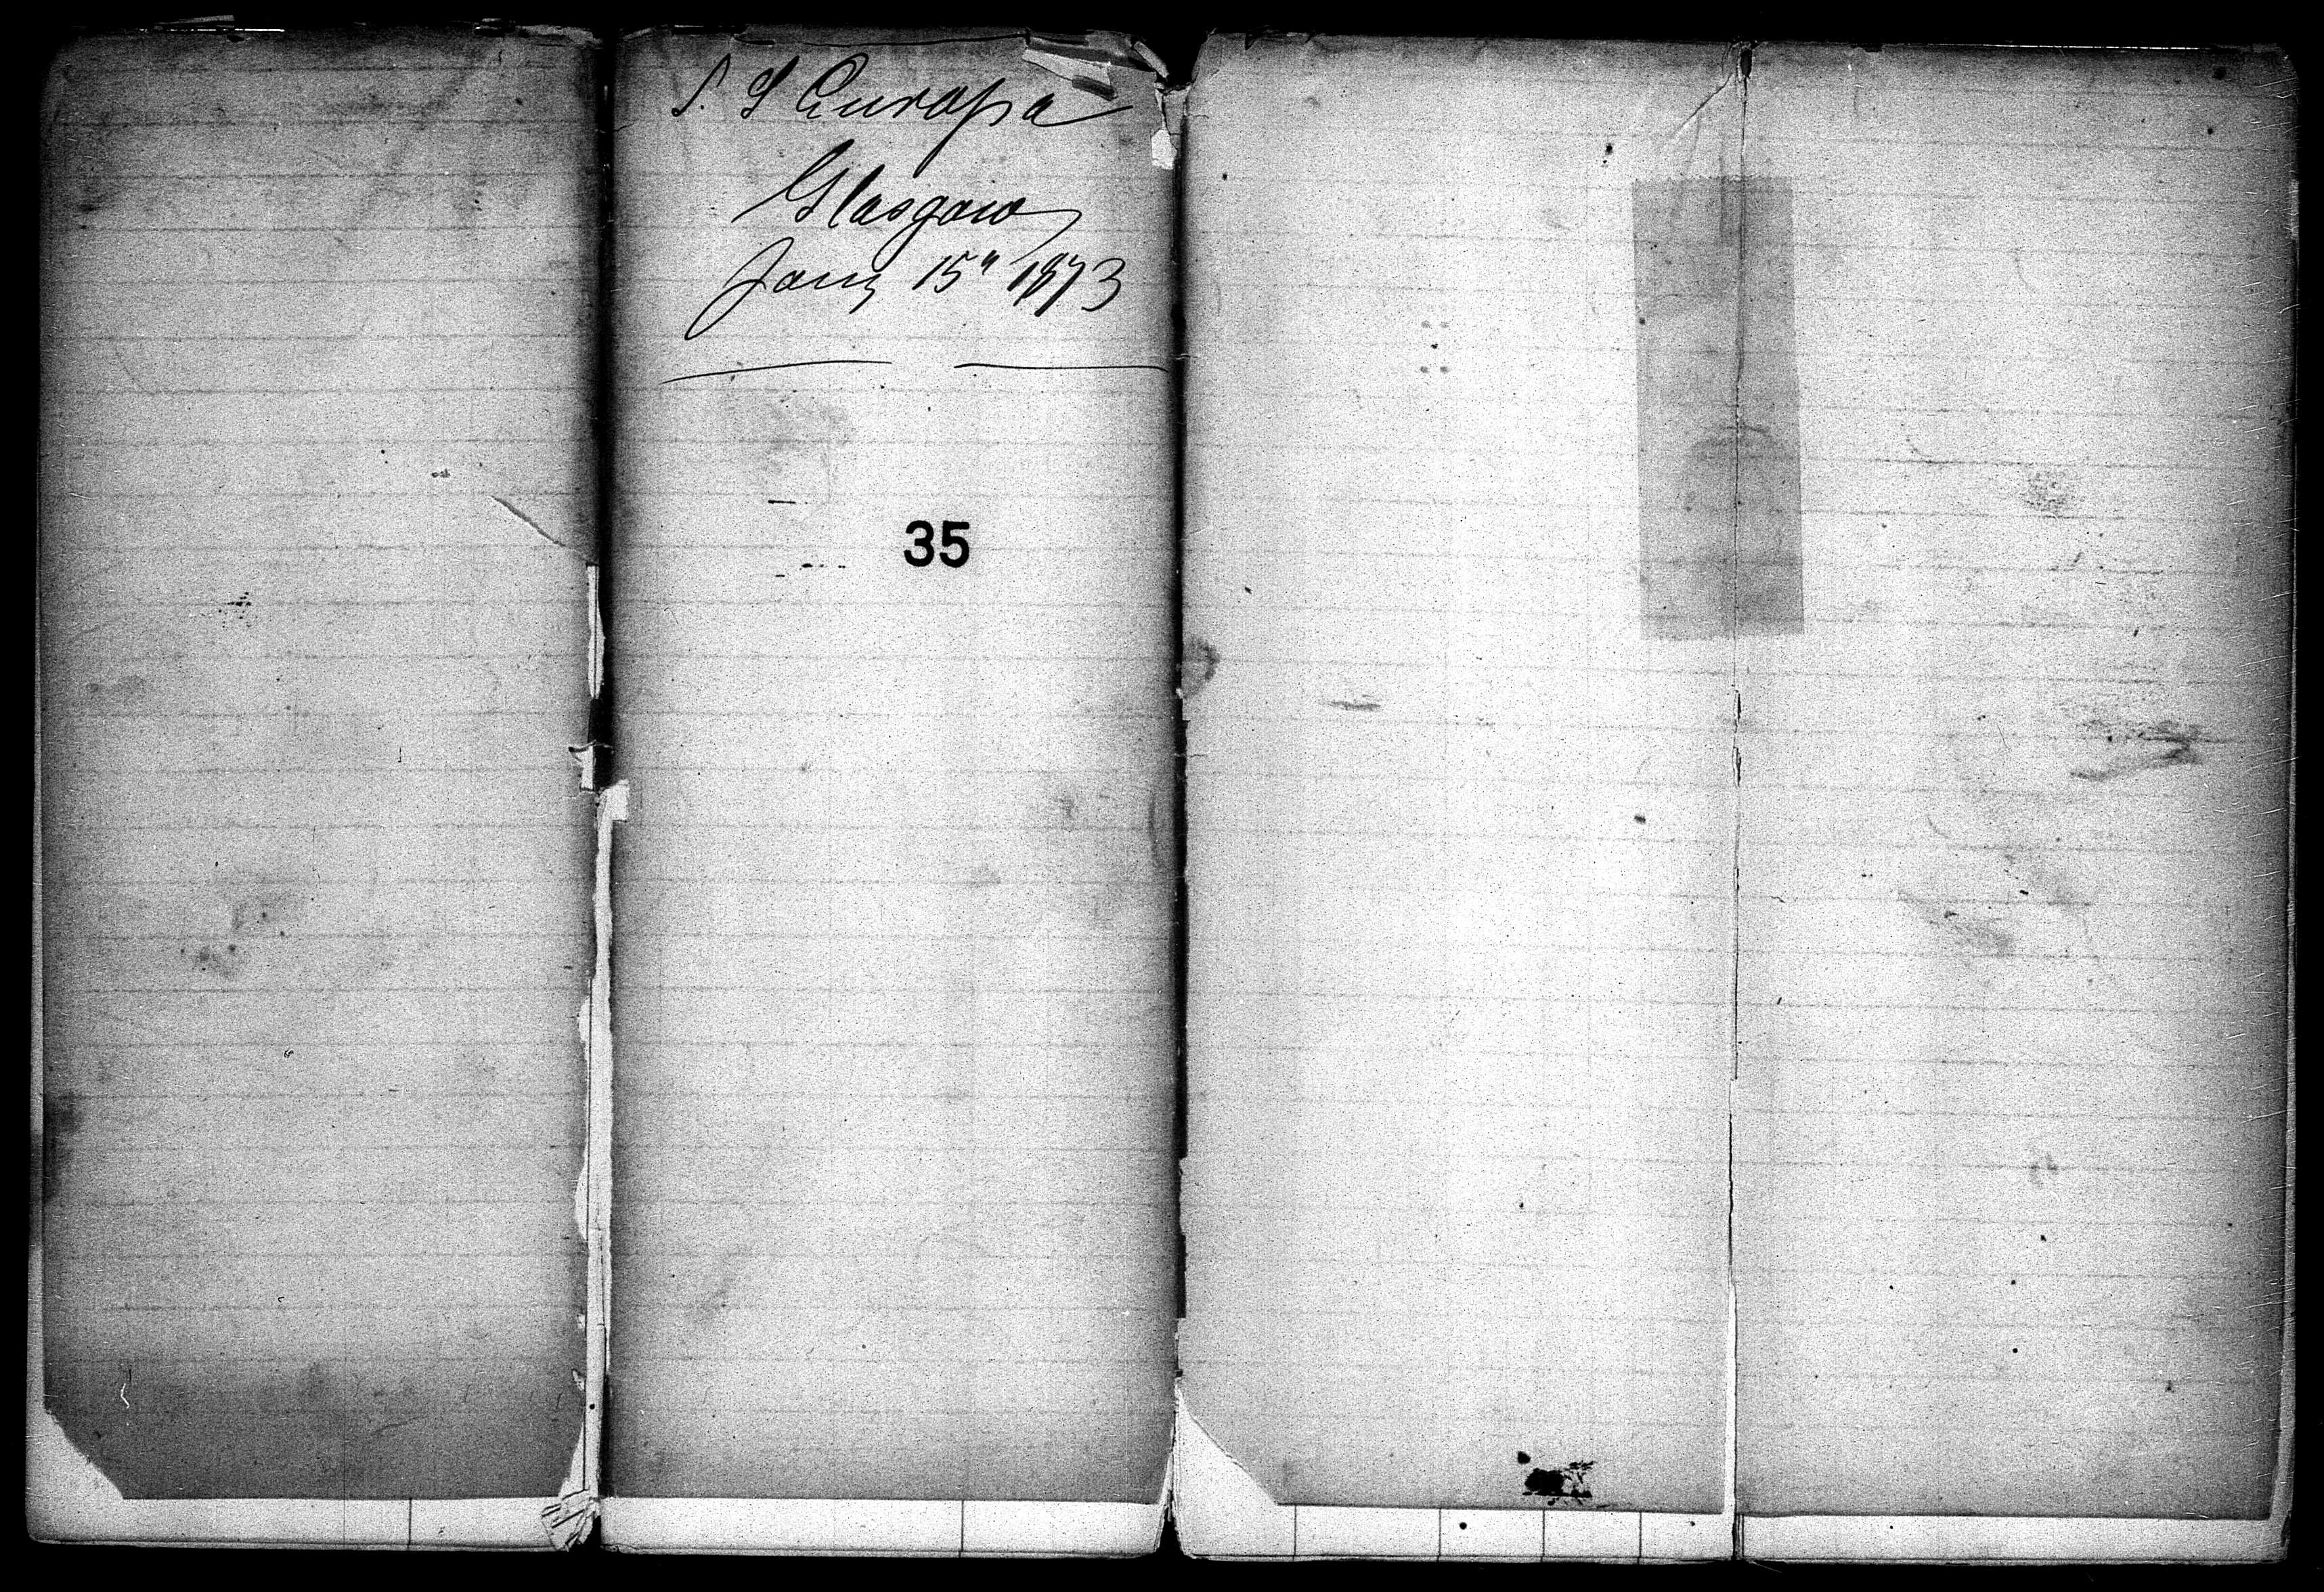 S. S Europa
Glasgow
Jany 15" 1873
35